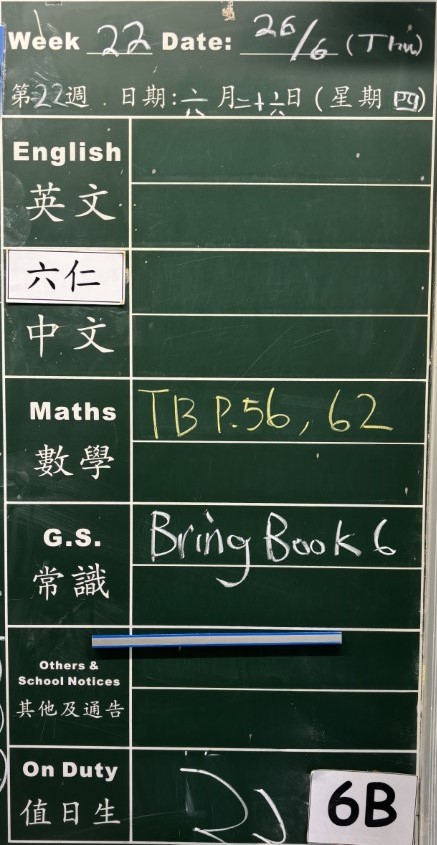 Week 22 Date: 26/6 (Thu)
第22週 日期:六月二十六日(星期四)
English
英文
六仁
中文
Maths TB P.56, 62
數學
G.S. Bring Book 6
常識
Others &
School Notices
其他及通告
On Duty
值日生
6B